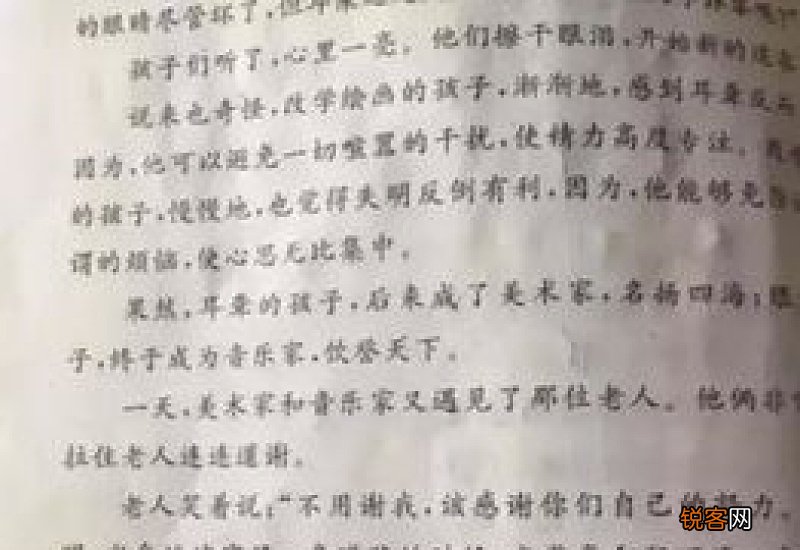 的眼睛尽管坏了，但耳朵还
孩子们听了，心里一亮。他们擦干眼泪，开始新的追
说来也奇怪，改学绘画的孩子，渐渐地，感到耳聋反
因为，他可以避免一切喧嚣的干扰，使精力高度专注。
的孩子，慢慢地，也觉得失明反倒有利，因为，他能够免
谓的烦恼，使心思无比集中。
果然，耳聋的孩子，后来成了美术家，名扬四海；眼
子，终于成为音乐家，饮誉天下。
一天，美术家和音乐家又遇见了那位老人。他俩非
拉住老人连连道谢。
老人笑着说：“不用谢我，该感谢你们自己的努力。
锐客网